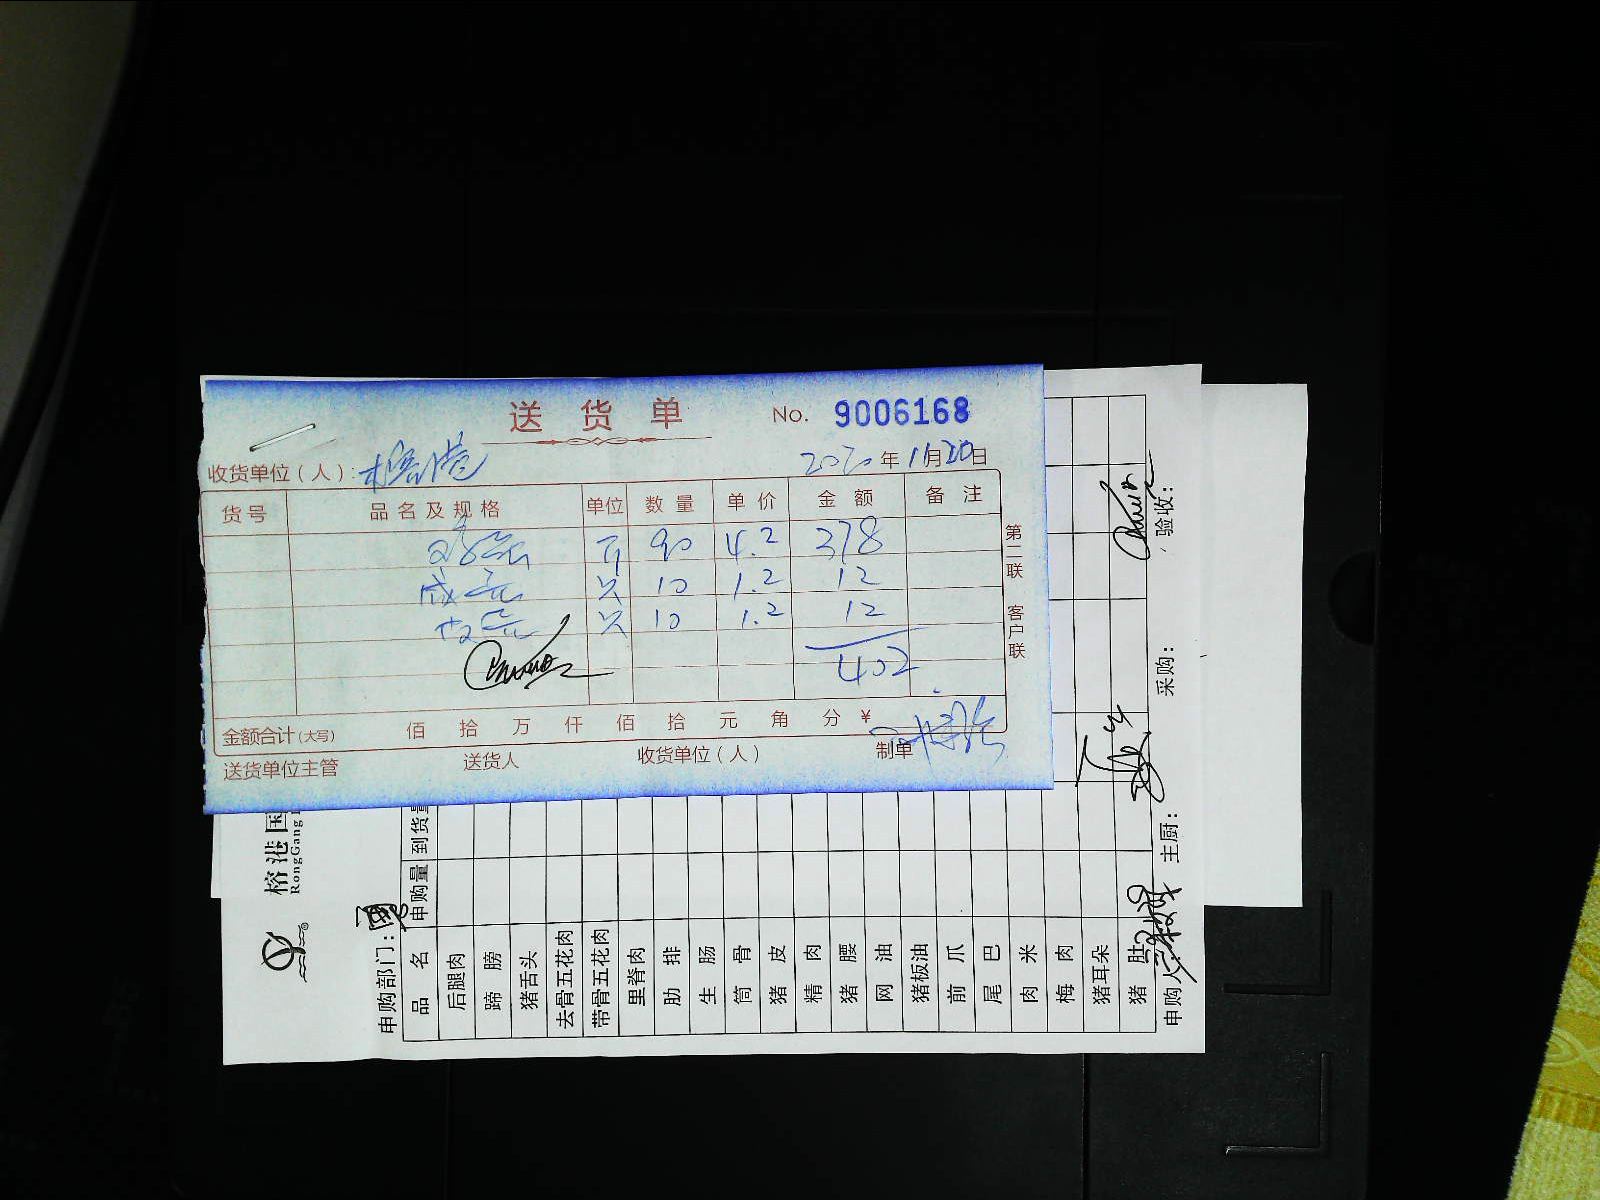 送货单
No. 9006168
收货单位(人): 榕港
2020年11月20日
货号 品名及规格 单位 数量 单价 金额 备注
鸡蛋 斤 90 4.2 378
咸蛋 只 10 1.2 12
皮蛋 只 10 1.2 12
402
金额合计(大写) 佰 拾 万 仟 佰 拾 元 角 分 ¥
送货单位主管 送货人 收货单位(人) 制单
第二联 客户联
榕港国
RongGang
申购部门:
品名 申购量 到货量
后腿肉
蹄膀
猪舌头
去骨五花肉
带骨五花肉
里脊肉
肋排
生肠
筒骨
猪皮
精肉
猪腰
网油
猪板油
前爪
尾巴
肉米
梅肉
猪耳朵
猪肚
申购人 主厨: 采购: 验收: